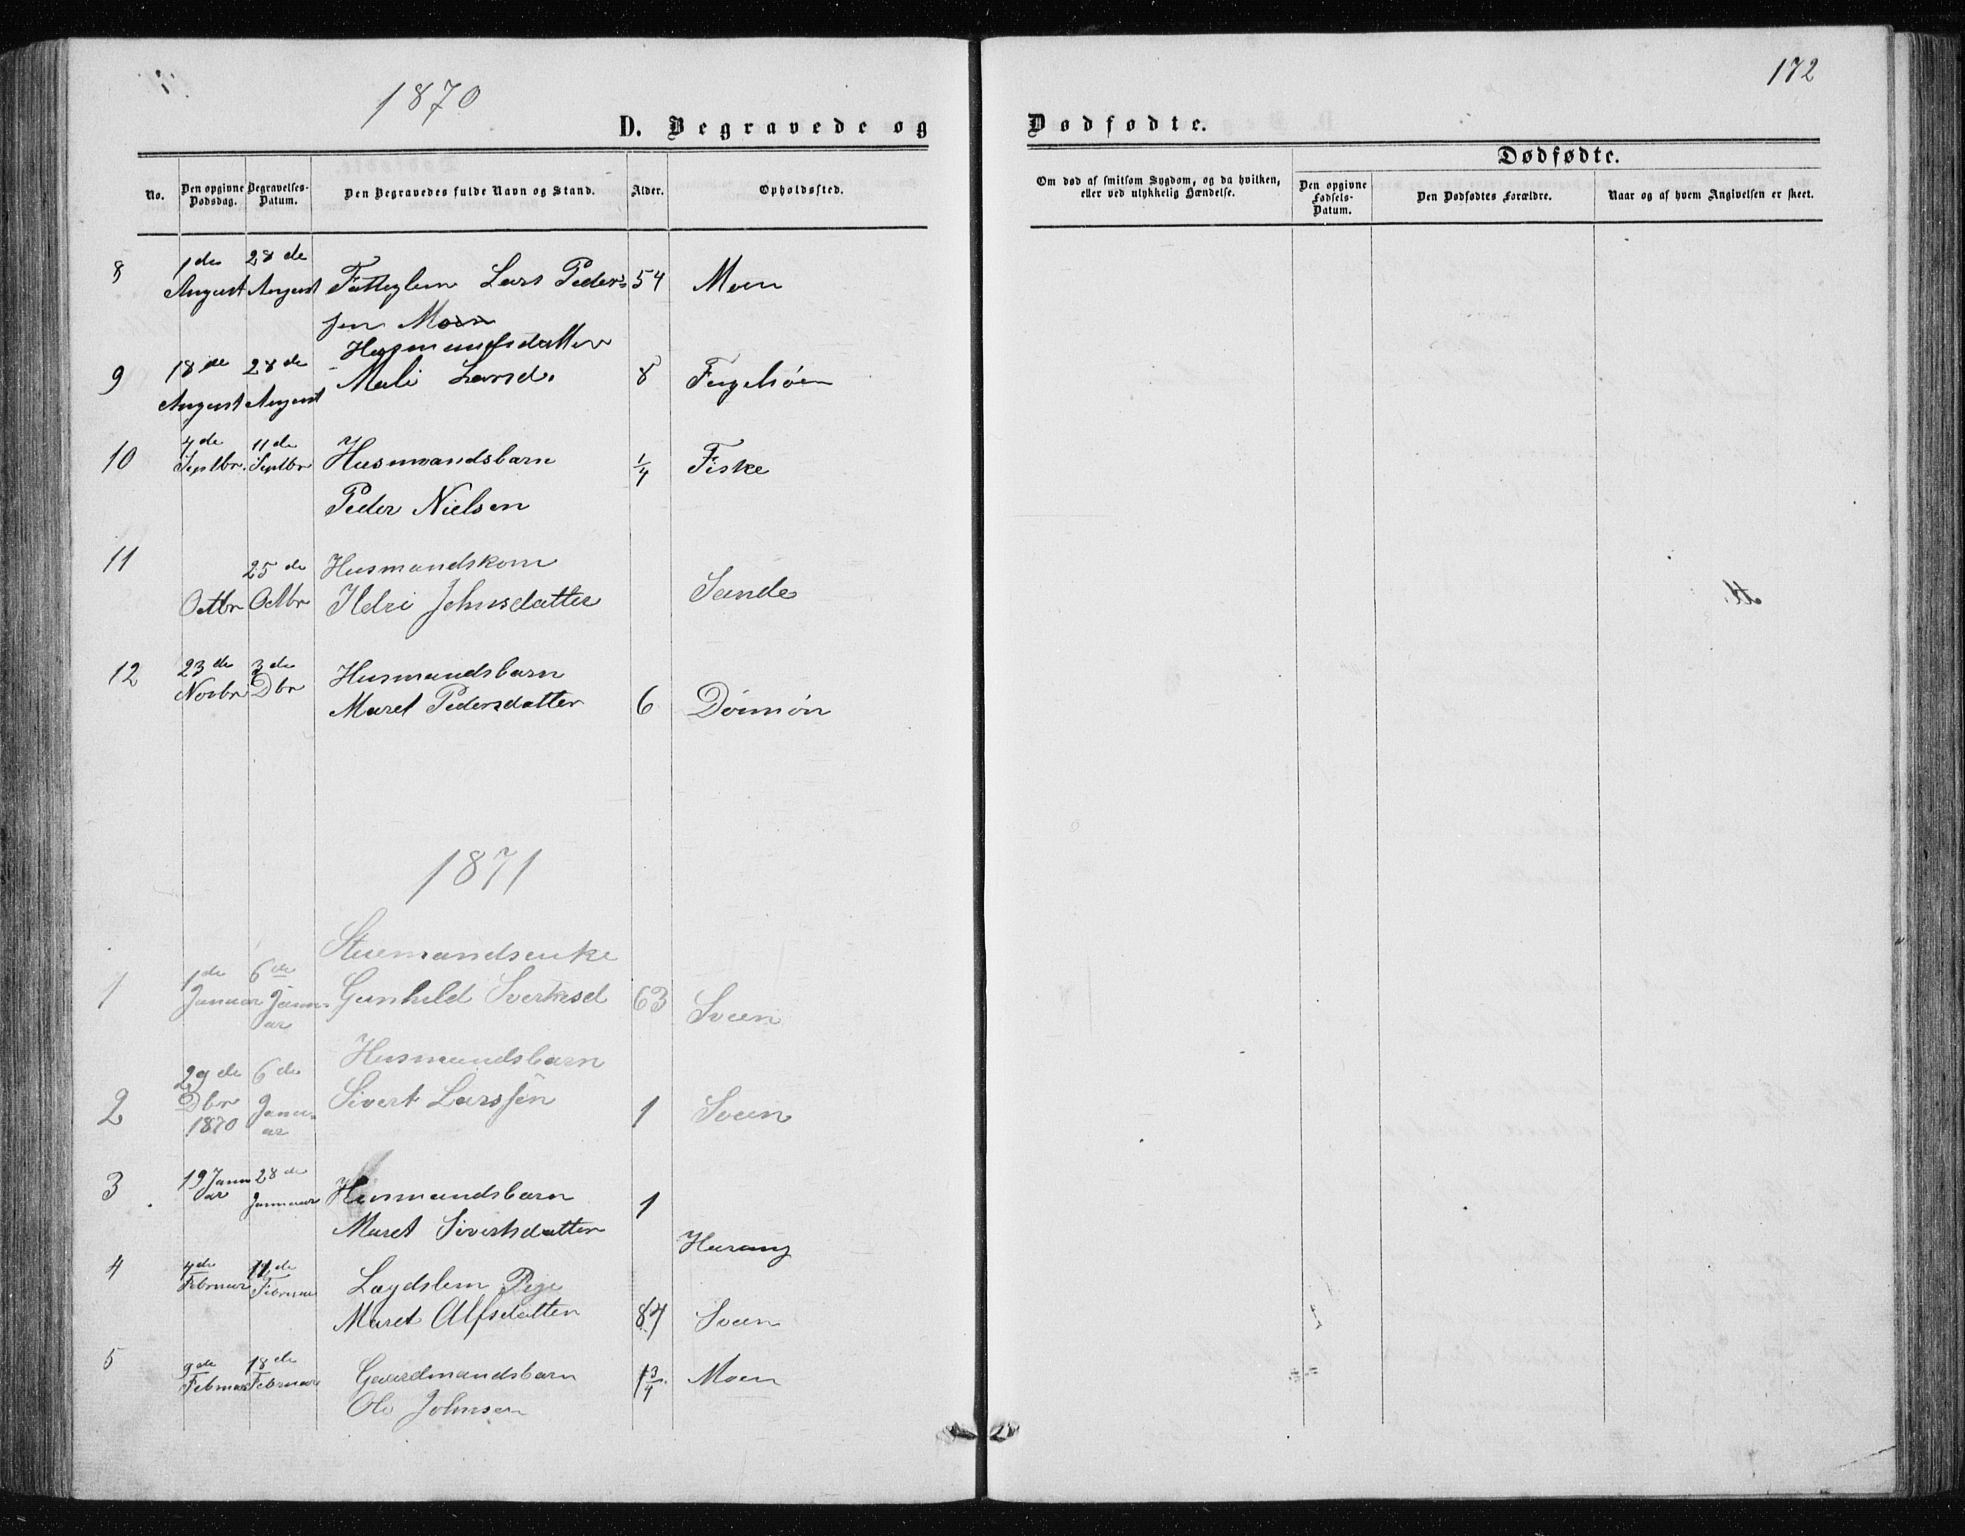 1870
172
D. Begravede og
Dødfødte.
Dødfødte.
No.
Den opgivne Dødsdag.
Begravelses-Datum.
Den Begravedes fulde Navn og Stand.
Alder.
Opholdssted.
Om død af smitsom Sygdom, og da hvilken, eller ved ulykkelig Hændelse.
Den opgivne Fødsels-Datum.
Den Dødfødtes Forældre.
Naar og af hvem Angivelsen er skeet.
8 1de August 28de August Fatteglem Lars Peder- 54 Moen
sen Moen
Husmandsdatter
9 18de August 28de August Mali Larsd. 8
10 4de Septbr. 11de Septbr Husmandsbarn 1/4 Fiske
Peder Nielsen
11 Octbr 25de Octbr Husmandskone
Ildri Johnsdatter Sande
12 23de Novbr 3de Dbr Husmandsbarn
Maret Pedersdatter 6
1871
1 1de Januar 6de Januar
Gunhild Sivertsd 63 Sveen
2 29de Dbr 1870 6de Januar Husmandsbarn
Sivert Larssen 1 Sveen
3 19 Januar 28de Januar Husmandsbarn 1
Maret Sivertsdatter Harang
4 4de Februar 11de Februar Lægdslem Pige
Maret Alfsdatter 84 Sveen
5 9de Februar 18de Februar Gaardmandsbarn 1 3/4 Moen
Ole Johnsen